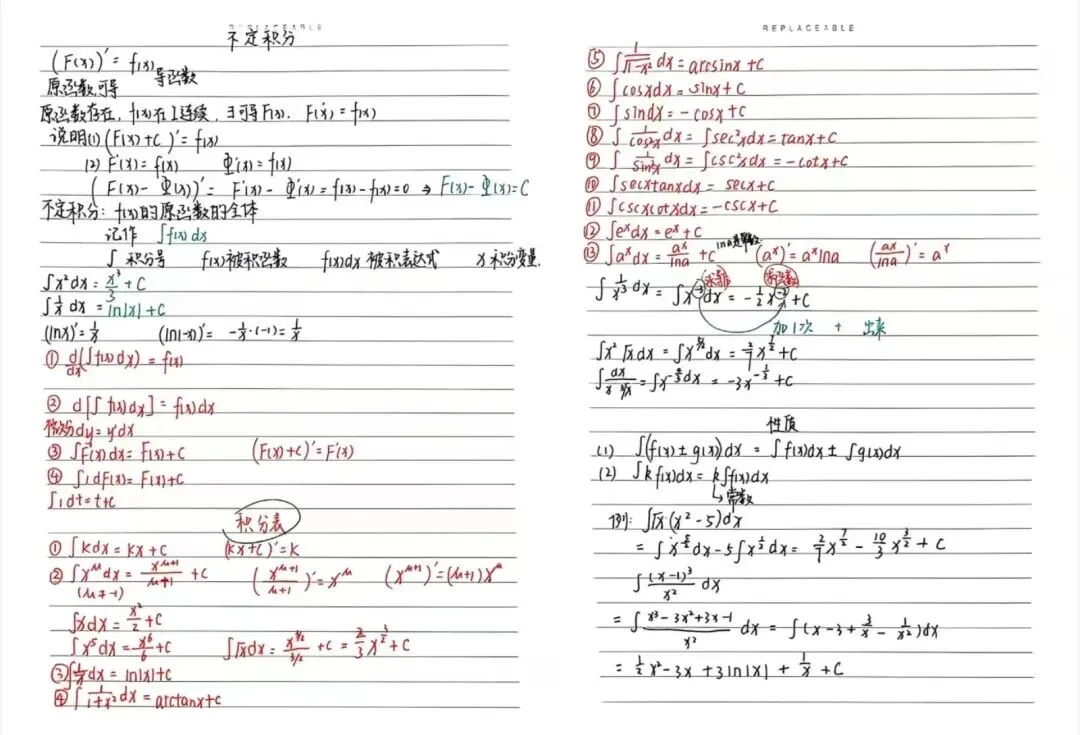 REPLACEABLE
不定积分
(F(x))' = f(x) 导函数
原函数,可导
原函数存在, f(x)在I连续, ∃可导F(x), F'(x) = f(x)
说明(1) (F(x)+C)' = f(x)
(2) F'(x) = f(x)  Φ'(x) = f(x)
(F(x) - Φ(x))' = F'(x) - Φ'(x) = f(x) - f(x) = 0 ⇒ F(x) - Φ(x) = C
不定积分: f(x)的原函数的全体
记作 ∫f(x)dx
∫ 积分号  f(x)被积函数  f(x)dx 被积表达式  x 积分变量.
∫x²dx = x³/3 + C
∫1/x dx = ln|x| + C
(lnx)' = 1/x  (ln(-x))' = -1/x·(-1) = 1/x
① d/dx(∫f(x)dx) = f(x)
② d[∫f(x)dx] = f(x)dx
微分dy = y'dx
③ ∫F'(x)dx = F(x)+C  (F(x)+C)' = F'(x)
④ ∫1dF(x) = F(x)+C
∫1dt = t+C
积分表
① ∫kdx = kx+C  (kx+C)' = k
② ∫x^μ dx = x^(μ+1)/(μ+1) + C  (x^(μ+1)/(μ+1))' = x^μ  (x^(μ+1))' = (μ+1)x^μ
(μ≠-1)
∫xdx = x²/2 + C
∫x⁵dx = x⁶/6 + C  ∫√x dx = x^(3/2)/(3/2) + C = 2/3 x^(3/2) + C
③ ∫1/x dx = ln|x|+C
④ ∫1/(1+x²) dx = arctanx+C
REPLACEABLE
⑤ ∫1/√(1-x²) dx = arcsinx+C
⑥ ∫cosxdx = sinx+C
⑦ ∫sindx = -cosx+C
⑧ ∫1/cos²x dx = ∫sec²xdx = tanx+C
⑨ ∫1/sin²x dx = ∫csc²xdx = -cotx+C
⑩ ∫secxtanxdx = secx+C
⑪ ∫cscxcotxdx = -cscx+C
⑫ ∫e^x dx = e^x+C
⑬ ∫a^x dx = a^x/lna + C  (a^x)' = a^x lna  (a^x/lna)' = a^x
∫1/x³ dx = ∫x^(-3) dx = -1/2 x^(-2) + C
加1次 + 出来
∫x²√x dx = ∫x^(5/2) dx = 2/7 x^(7/2) + C
∫dx/(x ³√x) = ∫x^(-4/3) dx = -3x^(-1/3) + C
性质
(1) ∫(f(x)±g(x))dx = ∫f(x)dx ± ∫g(x)dx
(2) ∫kf(x)dx = k∫f(x)dx
↳常数
例: ∫√x(x²-5)dx
= ∫x^(5/2) dx - 5∫x^(1/2) dx = 2/7 x^(7/2) - 10/3 x^(3/2) + C
∫(x-1)³/x² dx
= ∫(x³-3x²+3x-1)/x² dx = ∫(x-3+3/x-1/x²)dx
= 1/2 x² - 3x + 3ln|x| + 1/x + C